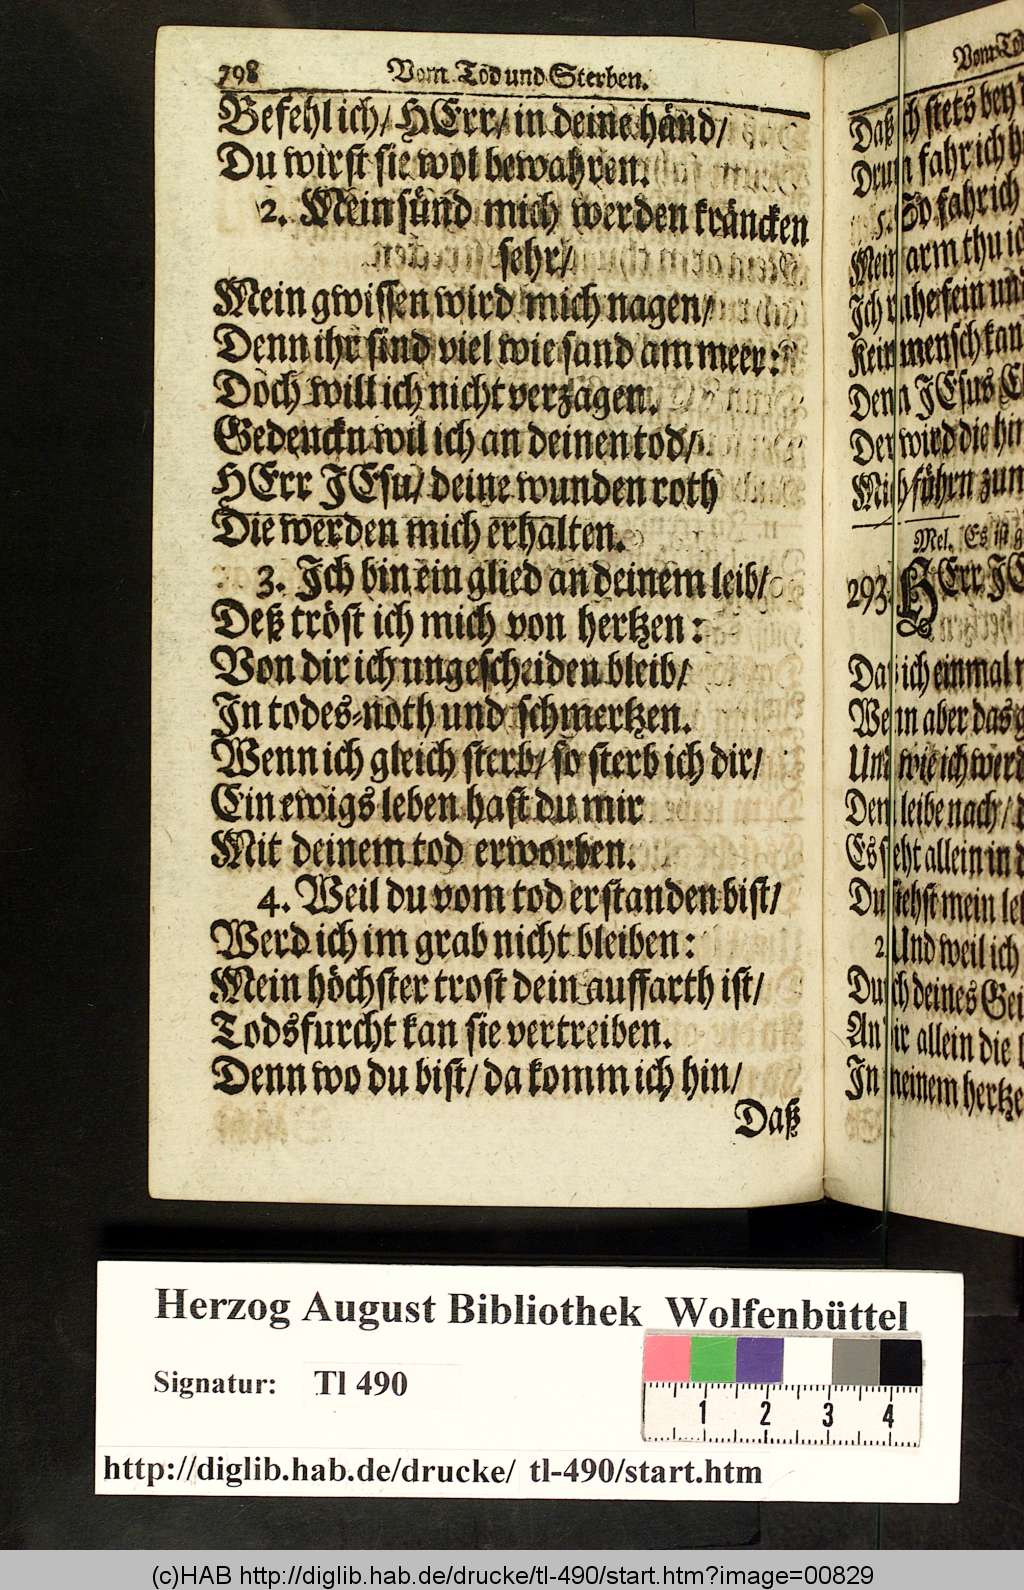 798 Vom Tod und Sterben.
Befehl ich/ HErr/ in deine händ/
Du wirst sie wol bewahren.
2. Mein sünd mich werden kräncken
sehr/
Mein gwissen wird mich nagen/
Denn ihr sind viel wie sand am meer:
Doch will ich nicht verzagen.
Gedenckn wil ich an deinen tod/
HErr JEsu/ deine wunden roth
Die werden mich erhalten.
3. Ich bin ein glied an deinem leib/
Deß tröst ich mich von hertzen:
Von dir ich ungescheiden bleib/
In todes-noth und schmertzen.
Wenn ich gleich sterb/ so sterb ich dir/
Ein ewigs leben hast du mir
Mit deinem tod erworben.
4. Weil du vom tod erstanden bist/
Werd ich im grab nicht bleiben:
Mein höchster trost dein auffarth ist/
Todsfurcht kan sie vertreiben.
Denn wo du bist/ da komm ich hin/
Daß
Vom
Daß ich stets bey
Drum fahr ich
5. So fahr ich
Mein arm thu
Ich
Kein mensch kan
Denn JEsus
Der wird die
Mich führn zum
Mel. Es ist
293. HErr
Daß ich einmal
Wenn aber das
Und wie ich werd
Dem leibe nach/
Es steht allein in
Du siehst mein
2. Und weil ich
Durch deines
An dir allein die
In meinem hertze
Herzog August Bibliothek Wolfenbüttel
Signatur: Tl 490
1 2 3 4
http://diglib.hab.de/drucke/ tl-490/start.htm
(c)HAB http://diglib.hab.de/drucke/tl-490/start.htm?image=00829